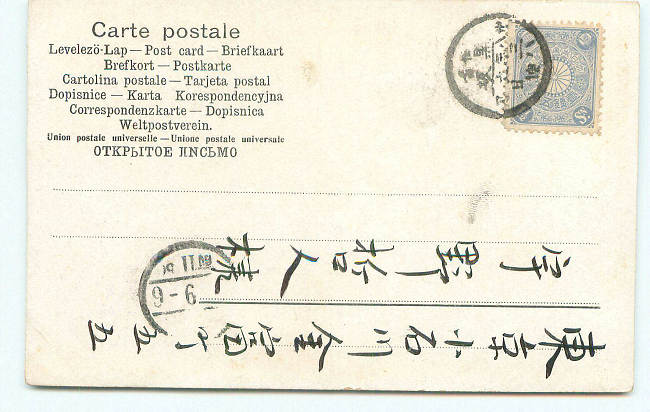 Carte postale
Levelezö-Lap — Post card — Briefkaart
Brefkort — Postkarte
Cartolina postale — Tarjeta postal
Dopisnice — Karta Korespondencyjna
Correspondenzkarte — Dopisnica
Weltpostverein.
Union postale universelle — Unione postale universale
ОТКРЫТОЕ ПИСЬМО
東京小石川金富町五五
宇野哲人様
9-6